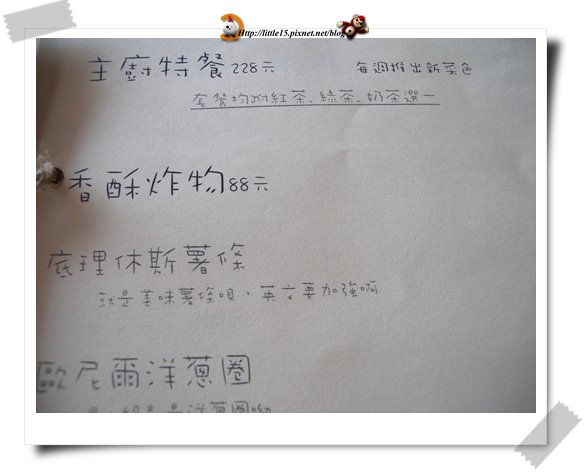 Http://little15.pixnet.net/blog
主廚特餐228元 每週推出新菜色
套餐均附紅茶、綠茶、奶茶選一
香酥炸物88元
底理休斯薯條
就是美味薯條唄，英文要加強啊
歐尼爾洋蔥圈
是洋蔥圈呦